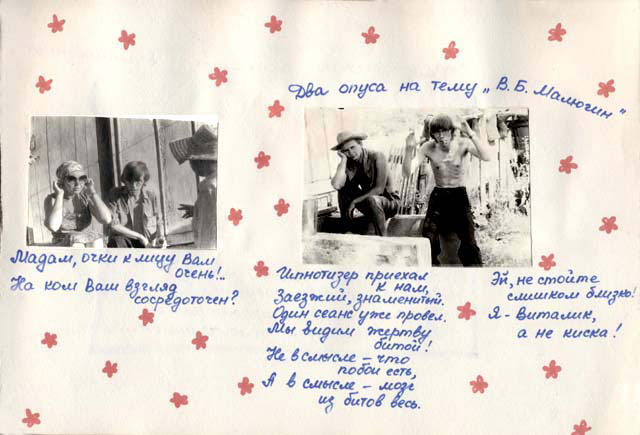 Два опуса на тему „В.Б. Малюгин"
Мадам, очки к лицу Вам
очень!..
На ком Ваш взгляд
сосредоточен?
Гипнотизер приехал
к нам,
Заезжий, знаменитый.
Один сеанс уже провел.
Мы видим жертву
битой!
Не в смысле – что
побои есть,
А в смысле – мозг
из битов весь.
Эй, не стойте
слишком близко!
Я - Виталик,
а не киска!